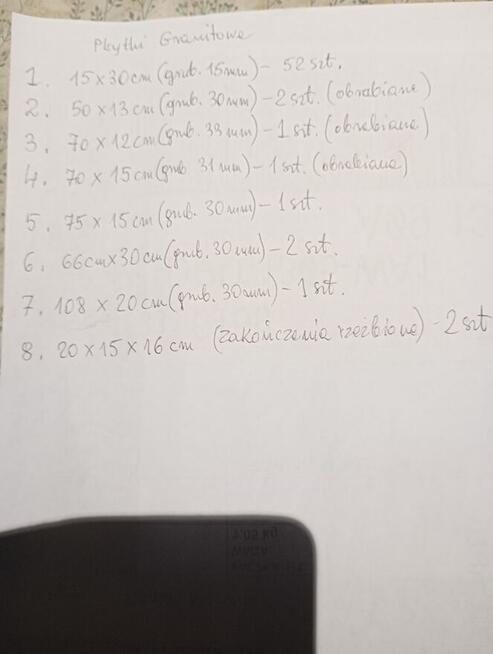 Płytki Granitowe
1. 15x30cm (grub. 15mm) - 52 szt.
2. 50x13cm (grub. 30mm) - 2 szt. (obrabiane)
3. 70x12cm (grub. 33mm) - 1 szt. (obrabiane)
4. 70x15cm (grub 31mm) - 1 szt. (obrabiane)
5. 75x15cm (grub. 30mm) - 1 szt.
6. 66cmx30cm (grub. 30mm) - 2 szt.
7. 108x20cm (grub. 30mm) - 1 szt.
8. 20x15x16cm (zakończenia rzeźbione) - 2 szt